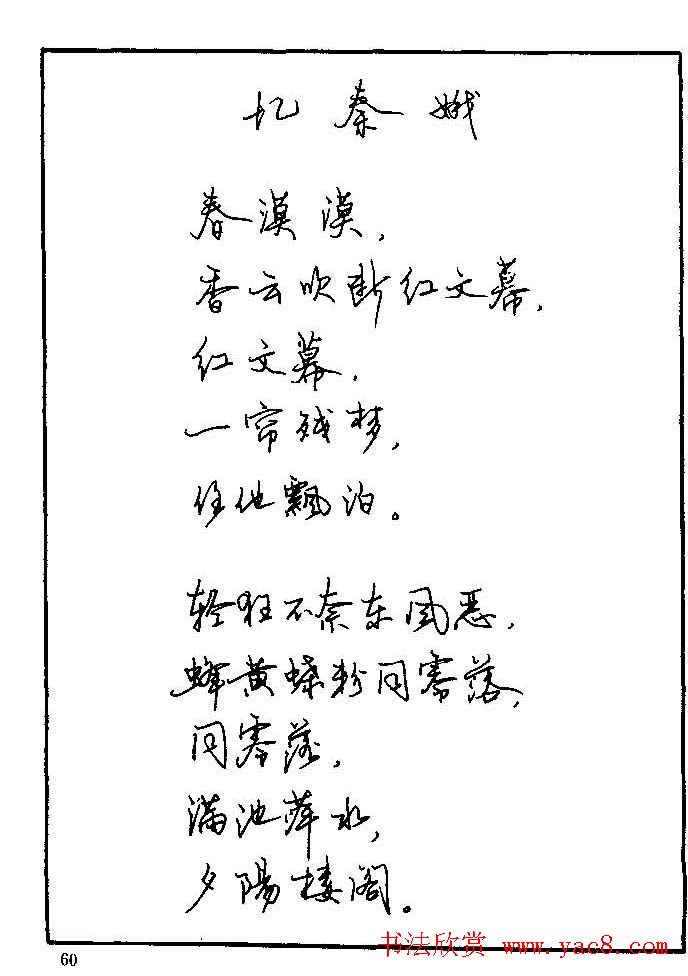 忆秦娥
春漠漠,
香云吹断红文幕,
红文幕,
一帘残梦,
任他飘泊。
轻狂不奈东风恶,
蜂黄蝶粉同零落,
同零落,
满池萍水,
夕陽楼阁。
60
书法欣赏 www.yac8.com